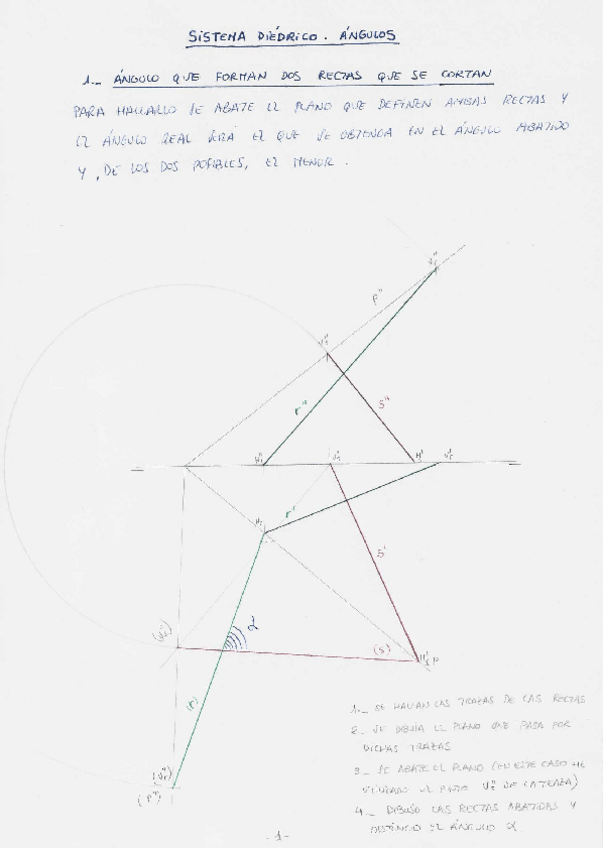 SISTEMA DIÉDRICO. ÁNGULOS
1._ ÁNGULO QUE FORMAN DOS RECTAS QUE SE CORTAN
PARA HALLARLO SE ABATE EL PLANO QUE DEFINEN AMBAS RECTAS Y
EL ÁNGULO REAL SERÁ EL QUE SE OBTENGA EN EL ÁNGULO ABATIDO
Y, DE LOS DOS POSIBLES, EL MENOR.
P"
r"
s"
r'
s'
α
(s)
(r)
(P")
1._ SE HALLAN LAS TRAZAS DE LAS RECTAS
2._ SE DIBUJA EL PLANO QUE PASA POR
DICHAS TRAZAS
3._ SE ABATE EL PLANO (EN ESTE CASO HE
EL PUNTO DE LA TRAZA)
4._ DIBUJO LAS RECTAS ABATIDAS Y
EL ÁNGULO α
-1-